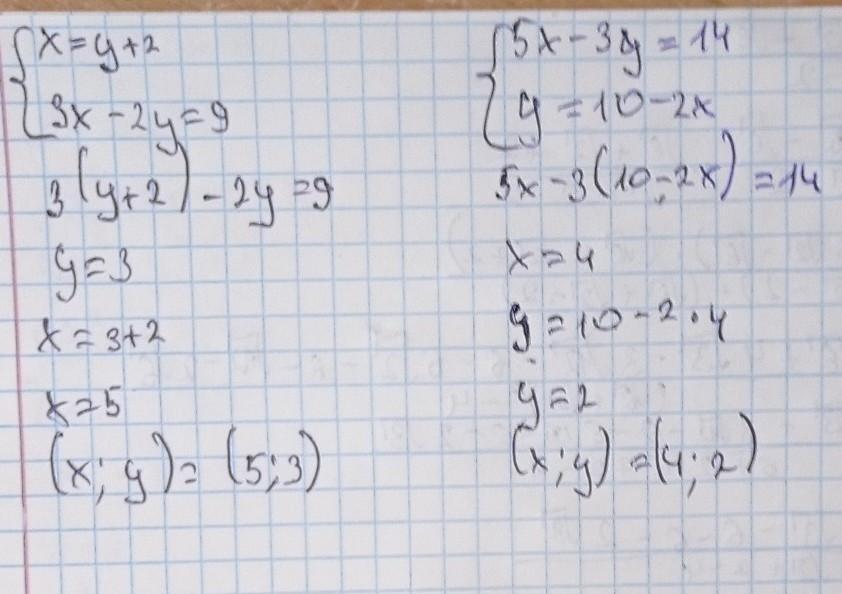 x = y + 2
3x - 2y = 9
3(y + 2) - 2y = 9
y = 3
x = 3 + 2
x = 5
(x; y) = (5; 3)
5x - 3y = 14
y = 10 - 2x
5x - 3(10 - 2x) = 14
x = 4
y = 10 - 2 · 4
y = 2
(x; y) = (4; 2)